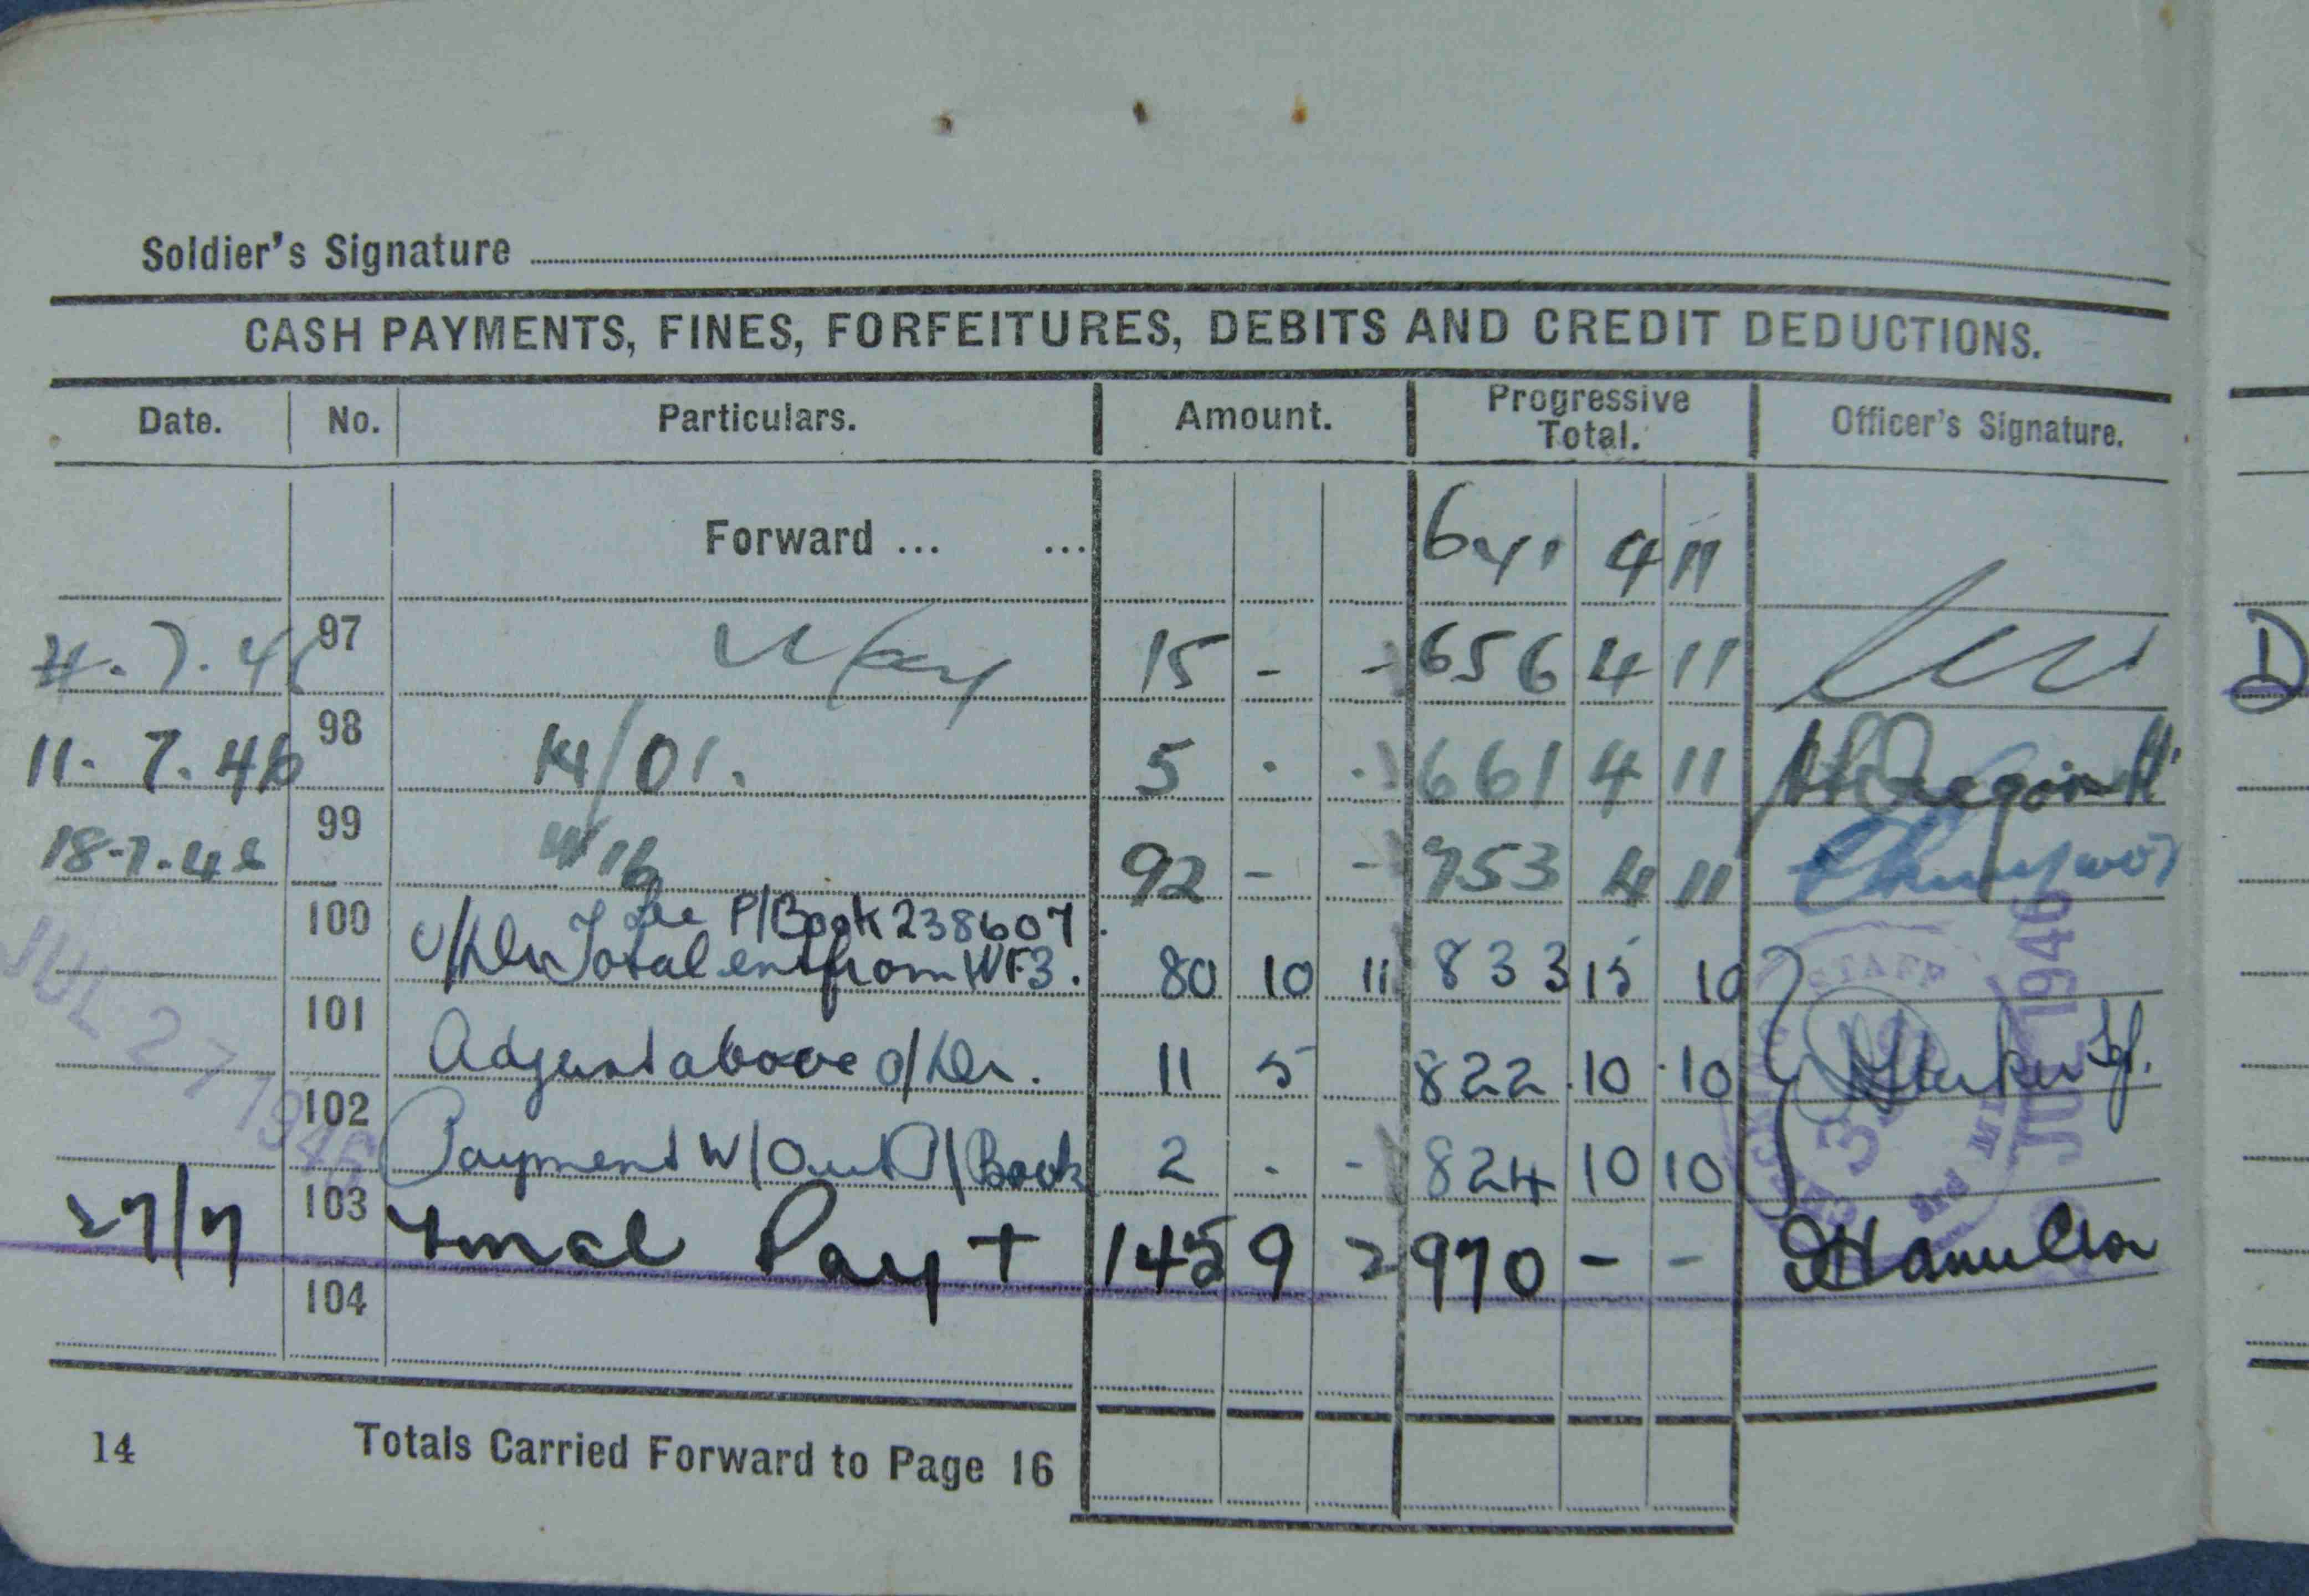 Soldier's Signature
CASH PAYMENTS, FINES, FORFEITURES, DEBITS AND CREDIT DEDUCTIONS.
Date. No. Particulars. Amount. Progressive Total. Officer's Signature.
Forward ... ... 641 4 11
97 15 - - 656 4 11
11. 7. 46 98 5 . . 661 4 11
18-7-46 99 92 - - 753 4 11
See P/Book 238607.
100 Total ent from WF3. 80 10 11 833 15 10
101 Adjust above o/Dr. 11 5 822 10 10
102 Payment W/Out P/Book 2 . - 824 10 10
27/7 103 Final Payt 145 9 2 970 - - Hamilton
104
JUL 27 1946
JUL 1946
14 Totals Carried Forward to Page 16
D